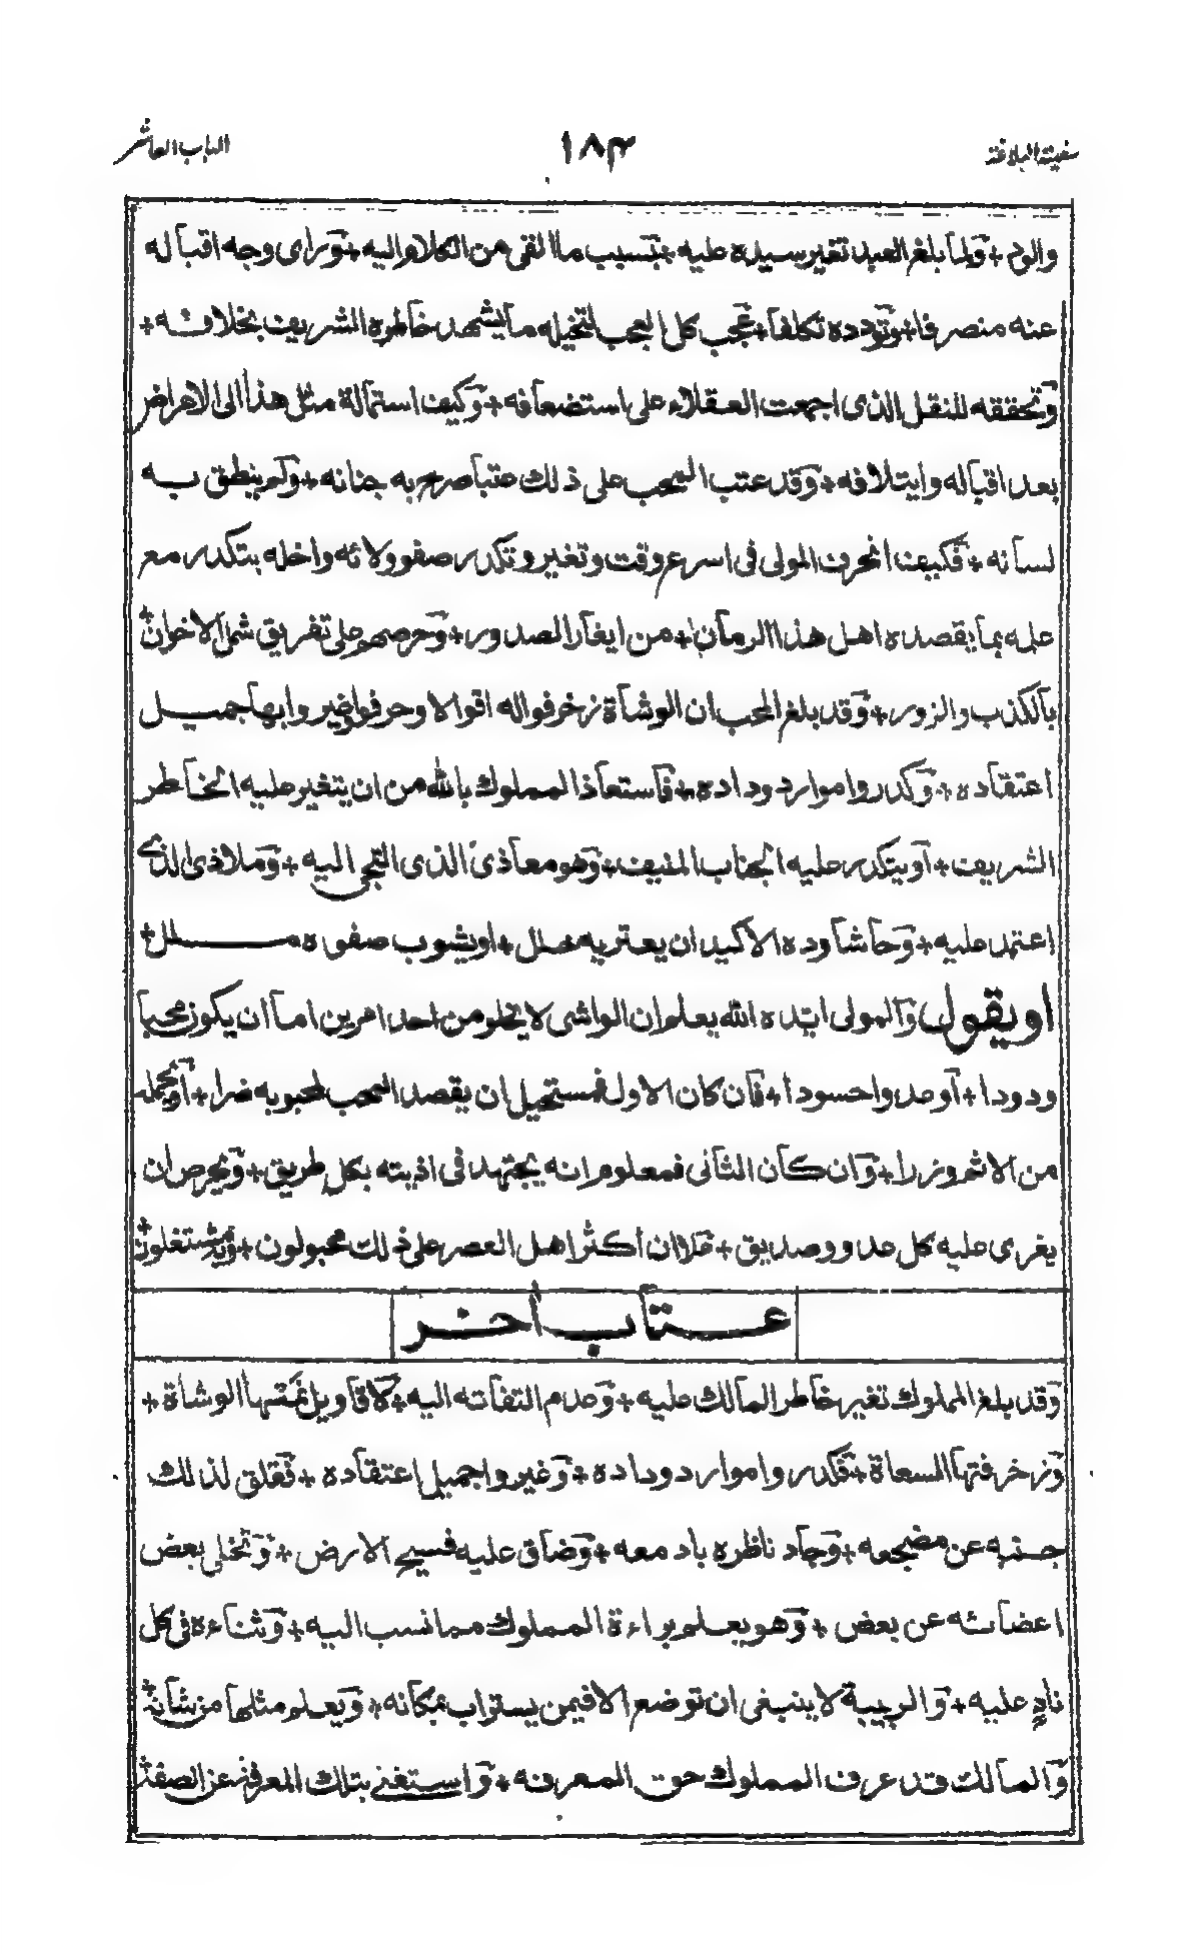 سفينة البلاغة ١٨٤ الباب العاشر
والوم + وَلما بلغ العبد تغير سيده عليه + بَسبب ما القى من الكلام اليه + وَراى وجه اقباله
عنه منصرفا + وَتودده تكلفا + عَجب كل العجب لتخيله ما يشهد خاطره الشريف بخلافه +
وَتحققه للنقل الذى اجمعت العقلاء على استضعافه + وَكيف استمالة مثل هذا الى الاعراض
بعد اقباله وايتلافه + وَقد عتب المحب على ذلك عتبا صرح به جنانه + وَلم ينطق به
لسانه + فَكيف انحرف المولى فى اسرع وقت وتغير وتكدر صفو ولائه واخله بتكدر مع
علمه بما يقصده اهل هذا الزمان + من ايغار الصدور + وَحرصهم على تفريق شمل الاخوان
بالكذب والزور + وَقد بلغ المحب ان الوشاة زخرفوا له اقوالا وحرفوا غيروا بها جميل
اعتقاده + وَكدروا موارد وداده + فَاستعاذ المملوك بالله من ان يتغير عليه الخاطر
الشريف + اَو يتكدر عليه الجناب المنيف + وَهو معاذى الذى التجى اليه + وَملاذى الذى
اعتمد عليه + وَحاشا وده الاكيد ان يعتريه خلل + او يشوب صفوه ملل +
او يقول وَالمولى ايده الله يعلم ان الواشى لا يخلو من احد امرين اما ان يكون محبا
ودودا + اَو عدوا حسودا + فَان كان الاول فمستحيل ان يقصد المحب لمحبوبه ضرا + اَو يحمله
من الاثم وزرا + وَان كان الثانى فمعلوم انه يجتهد فى اذيته بكل طريق + وَيحرص ان
يغرى عليه كل عدو وصديق + فَلان اكثر اهل العصر على ذلك مجبولون + وَبه مشتغلون
عتاب اخر
وَقد بلغ المملوك تغير خاطر المالك عليه + وَعدم التفاته اليه + لاقاويل نمقتها الوشاة +
وَزخرفتها السعاة + فَكدروا موارد وداده + وَغيروا جميل اعتقاده + فَقلق لذلك
جنبه عن مضجعه + وَجاد ناظره بادمعه + وَضاق عليه فسيح الارض + وَتخلى بعض
اعضائه عن بعض + وَهو يعلم براءة المملوك مما نسب اليه + وَثناءه فى كل
نادٍ عليه + وَالريبة لا ينبغى ان توضع الا فيمن يستراب بمكانه + وَيعلم مثلها من شانه
وَالمالك قد عرف المملوك حق المعرفة + وَاستغنى بتلك المعرفة عن الصفة